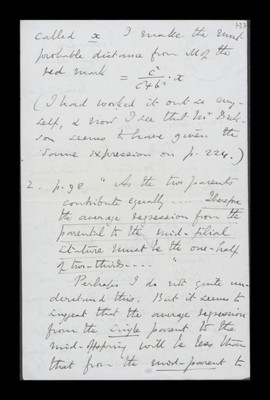 called x I make the most
probable distance from M of the
red mark = c²/c²+b² · x
(I had worked it out so my-
self, & now I see that Mr Dick-
son seems to have given the
same expression on p. 224.)
2. p. 98 " As the two parents
contribute equally .... Therefore
the average regression from the
parental to the mid-filial
stature must be the one-half
of two-thirds .... "
Perhaps I do not quite un-
derstand this. But it seems to
suggest that the average regression
from the single parent to the
mid-offspring will be less than
that from the mid-parent to